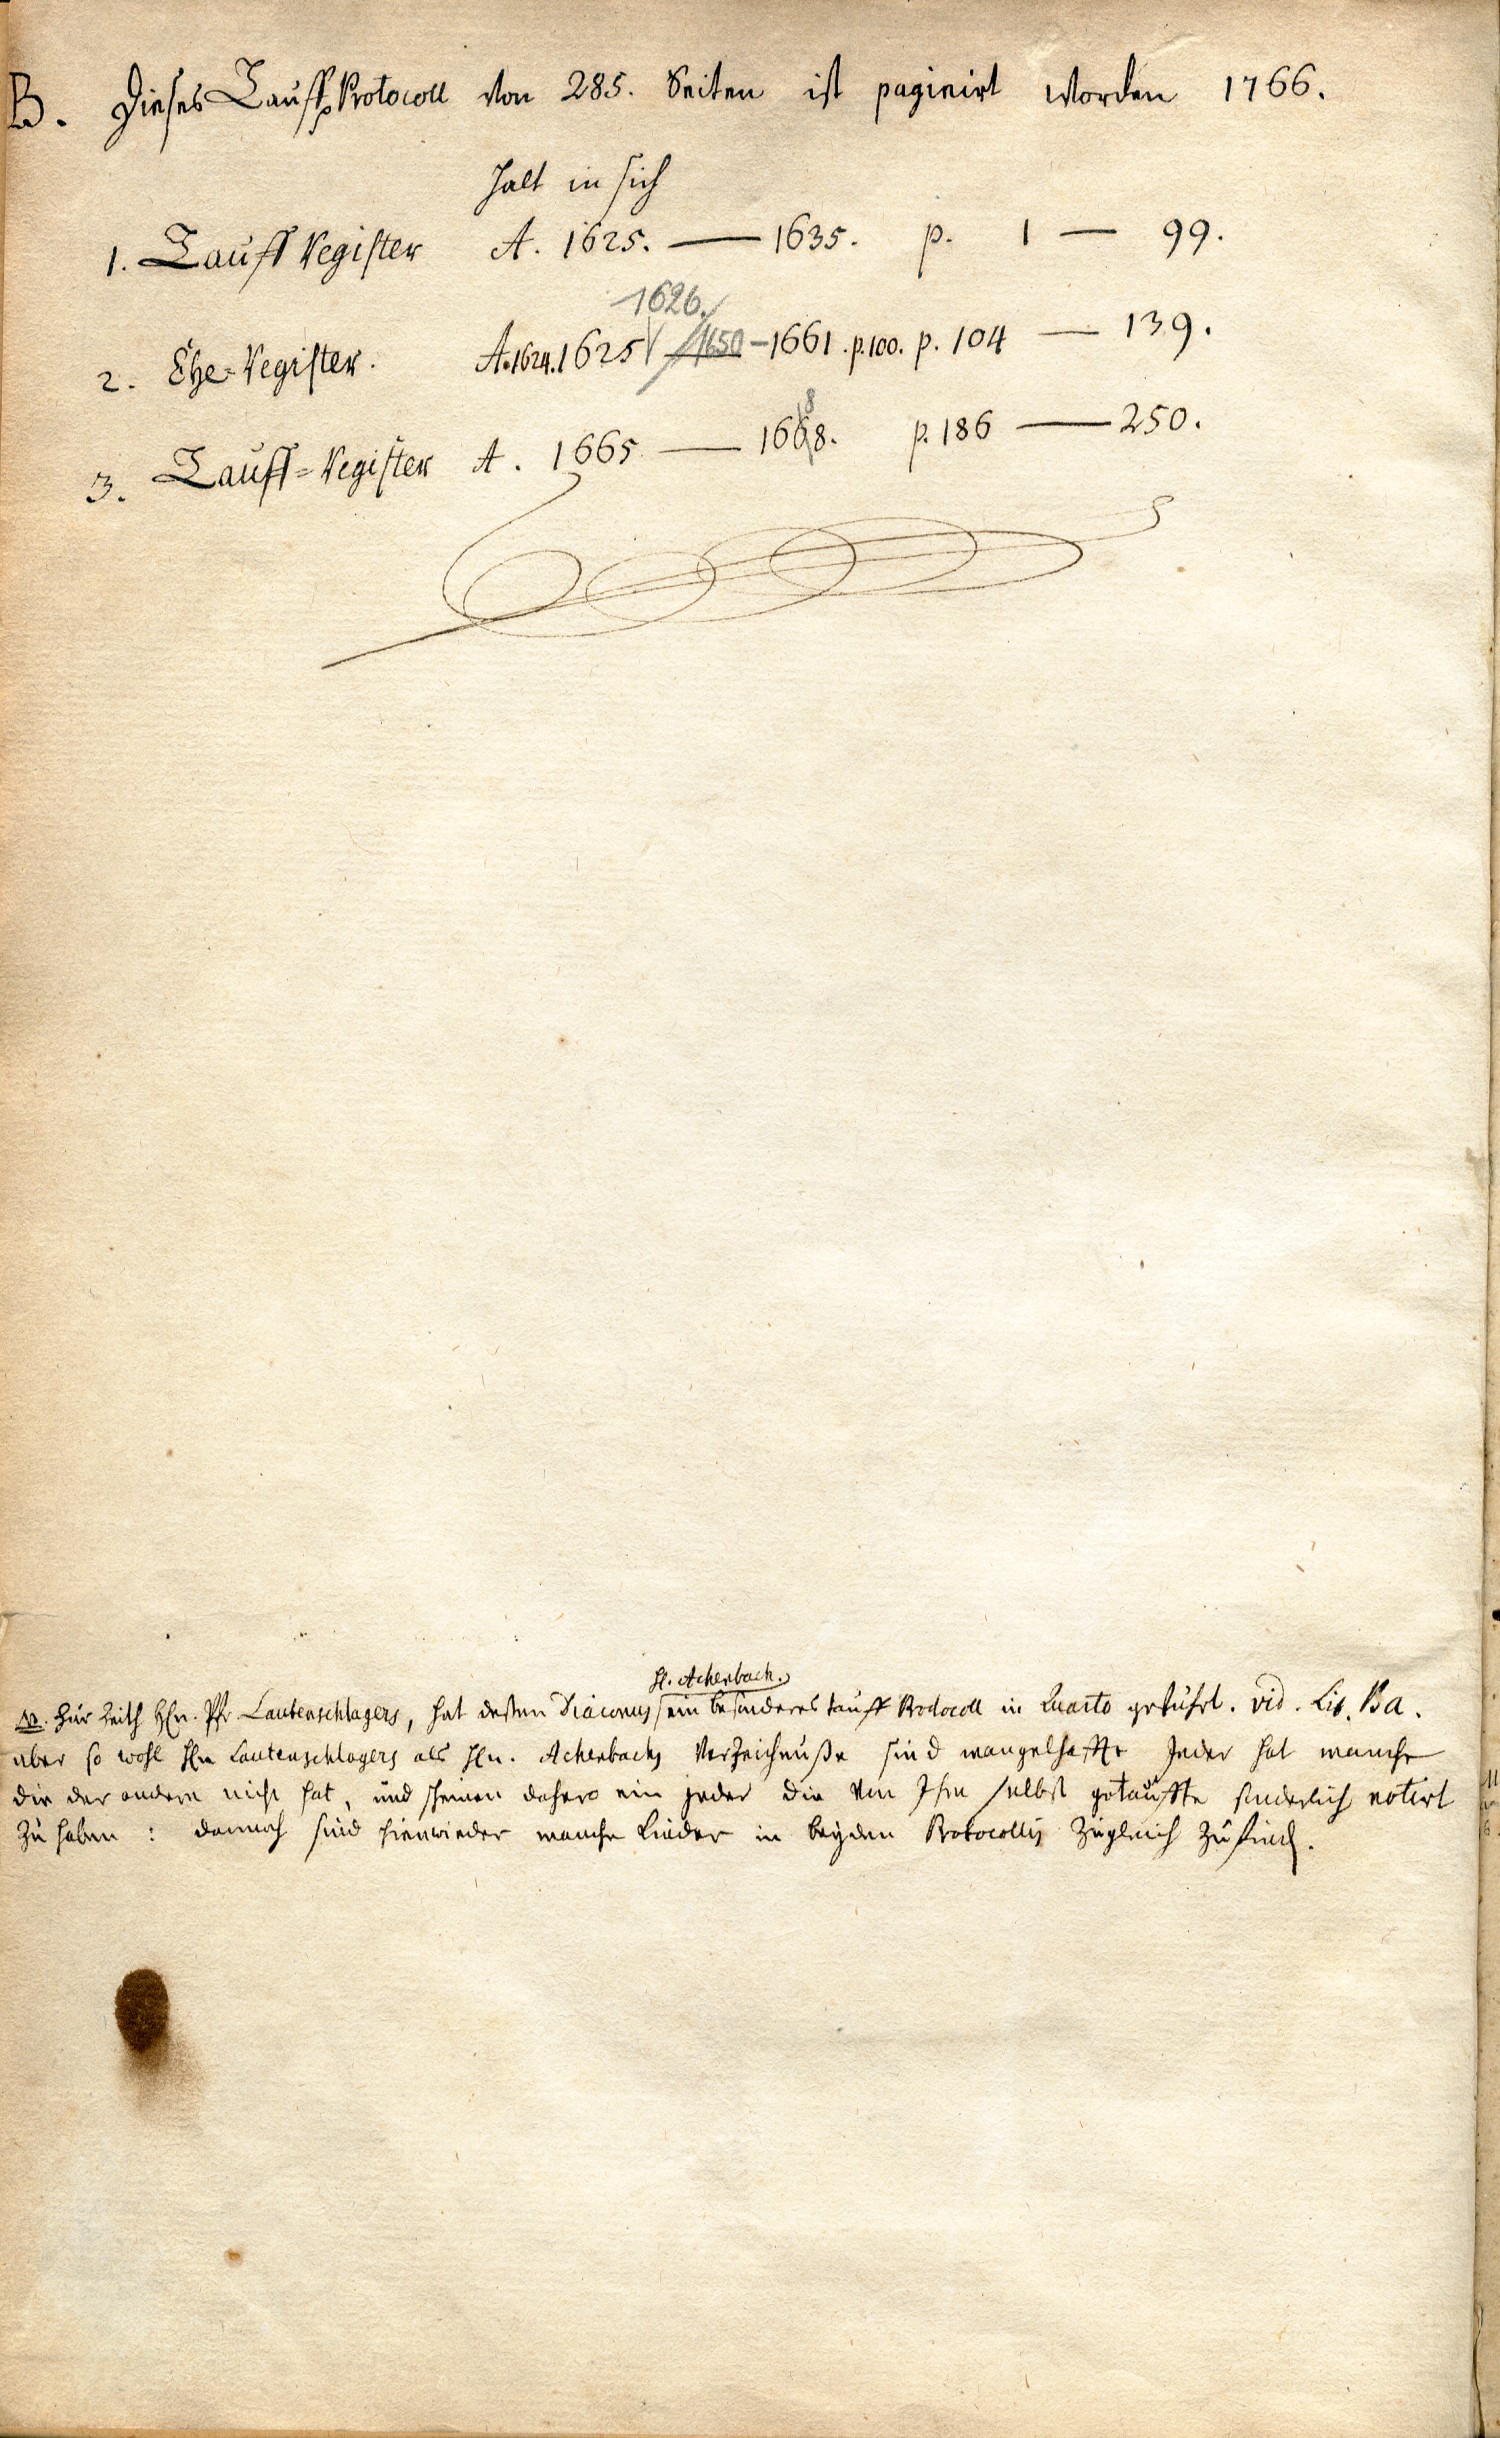 B. Dieses Tauff Protocoll von 285. Seiten ist paginirt worden 1766.
Halt in sich
1. Tauff Register A. 1625. — 1635. p. 1 — 99.
1626.
2. Ehe-Register. A. 1624. 1625 1650 - 1661. p. 100. p. 104 — 139.
8
3. Tauff-Register A. 1665 — 1668. p. 186 — 250.
H. Achenbach.
NB. Zur Zeith Hln. Pfr Lautenschlagers, hat deßen Diaconus ein besonderes tauff Protocoll in Quarto geführt. vid. Lit. Ba.
aber so wohl Hln Lautenschlagers als Hln. Achenbachs Verzeichnuße sind mangelhafft Jeder hat manche
die der andere nicht hat, und scheinen dahero ein jeder die von Ihm selbst getauffte sonderlich notirt
zu haben: dennoch sind hinwieder manche Kinder in beyden Protocollis zugleich zu find.